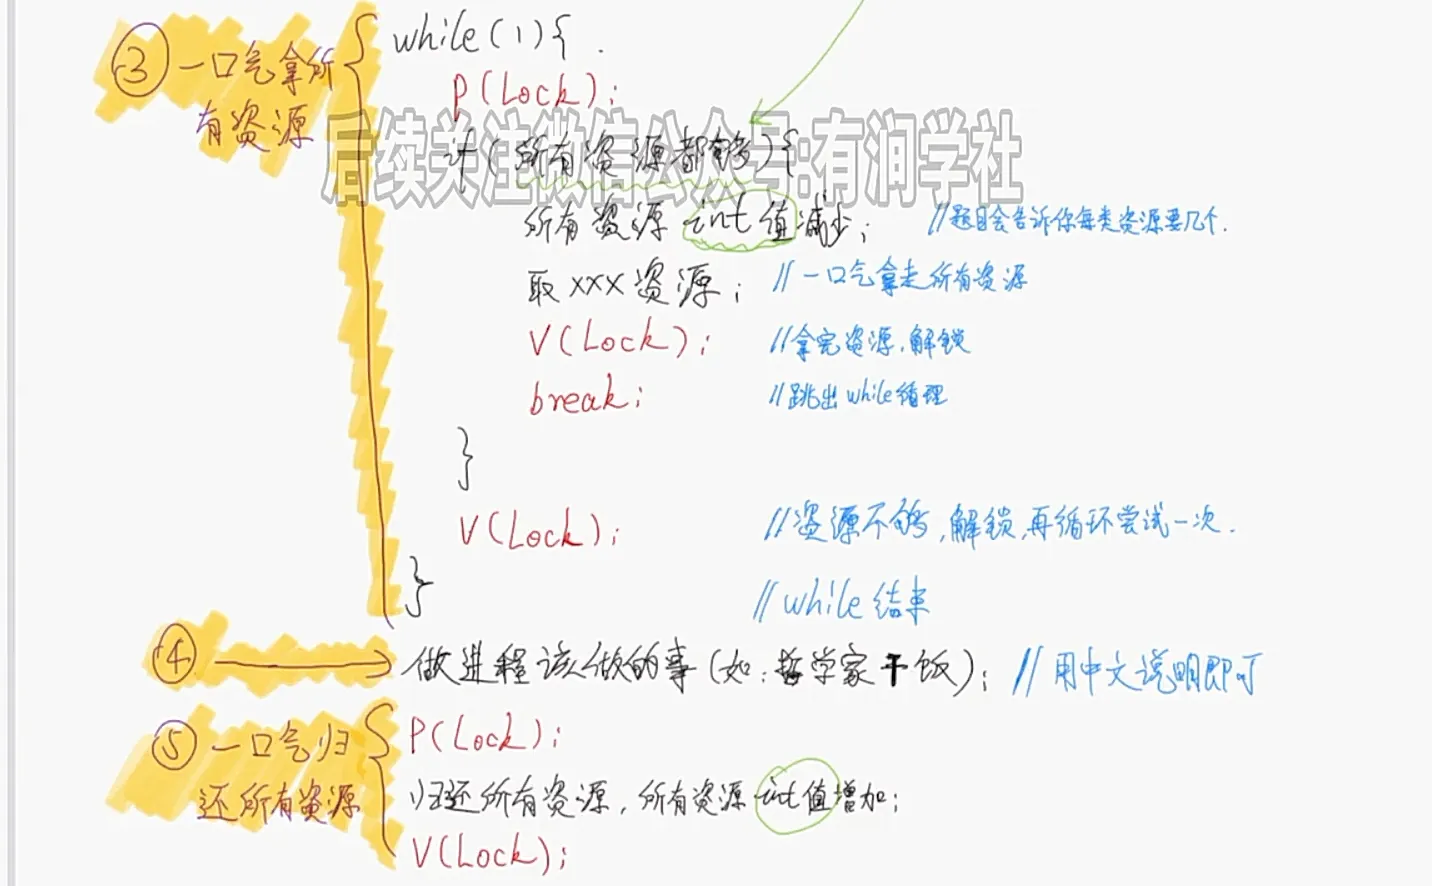 ③ 一口气拿所
有资源
while(1){
P(Lock);
后续关注微信公众号:有润学社
if(所有资源都够){
所有资源int值减少; //题目会告诉你每类资源要几个.
取xxx资源; //一口气拿走所有资源
V(Lock); //拿完资源,解锁
break; //跳出while循理
}
V(Lock); //资源不够,解锁,再循环尝试一次.
} //while结束
④ 做进程该做的事(如:哲学家干饭); //用中文说明即可
⑤ 一口气归
还所有资源
P(Lock);
归还所有资源,所有资源int值增加;
V(Lock);